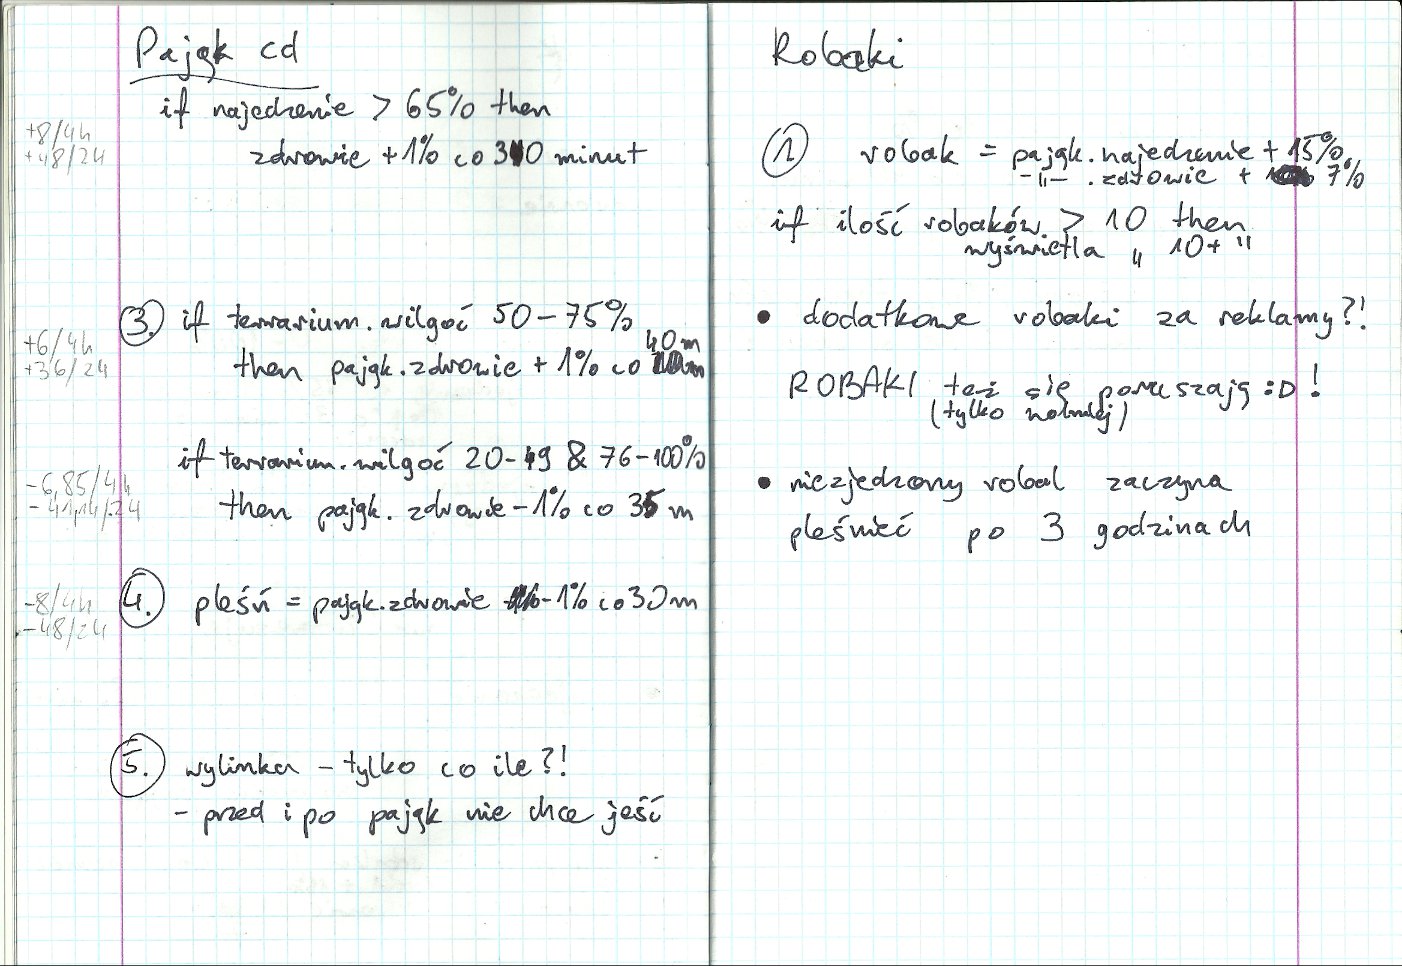 Pająk cd
if najedzenie > 65% then
+8/4h
+48/24
zdrowie +1% co 30 minut
3. if terrarium.wilgoć 50-75%
+6/4h
+36/24
then pająk.zdrowie +1% co 40m
if terrarium.wilgoć 20-49 & 76-100%
-6,85/4h
-41,14/24
then pająk.zdrowie -1% co 35 m
-8/4h
-48/24
4. pleśń = pająk.zdrowie -1% co 30m
5. wylinka - tylko co ile?!
- przed i po pająk nie chce jeść
Robaki
1 robak = pająk.najedzenie + 15%
-"- .zdrowie + 7%
if ilość robaków > 10 then
wyświetla " 10+ "
• dodatkowe robaki za reklamy?!
ROBAKI też się poruszają :D !
(tylko wolniej)
• niezjedzony robal zaczyna
pleśnieć po 3 godzinach